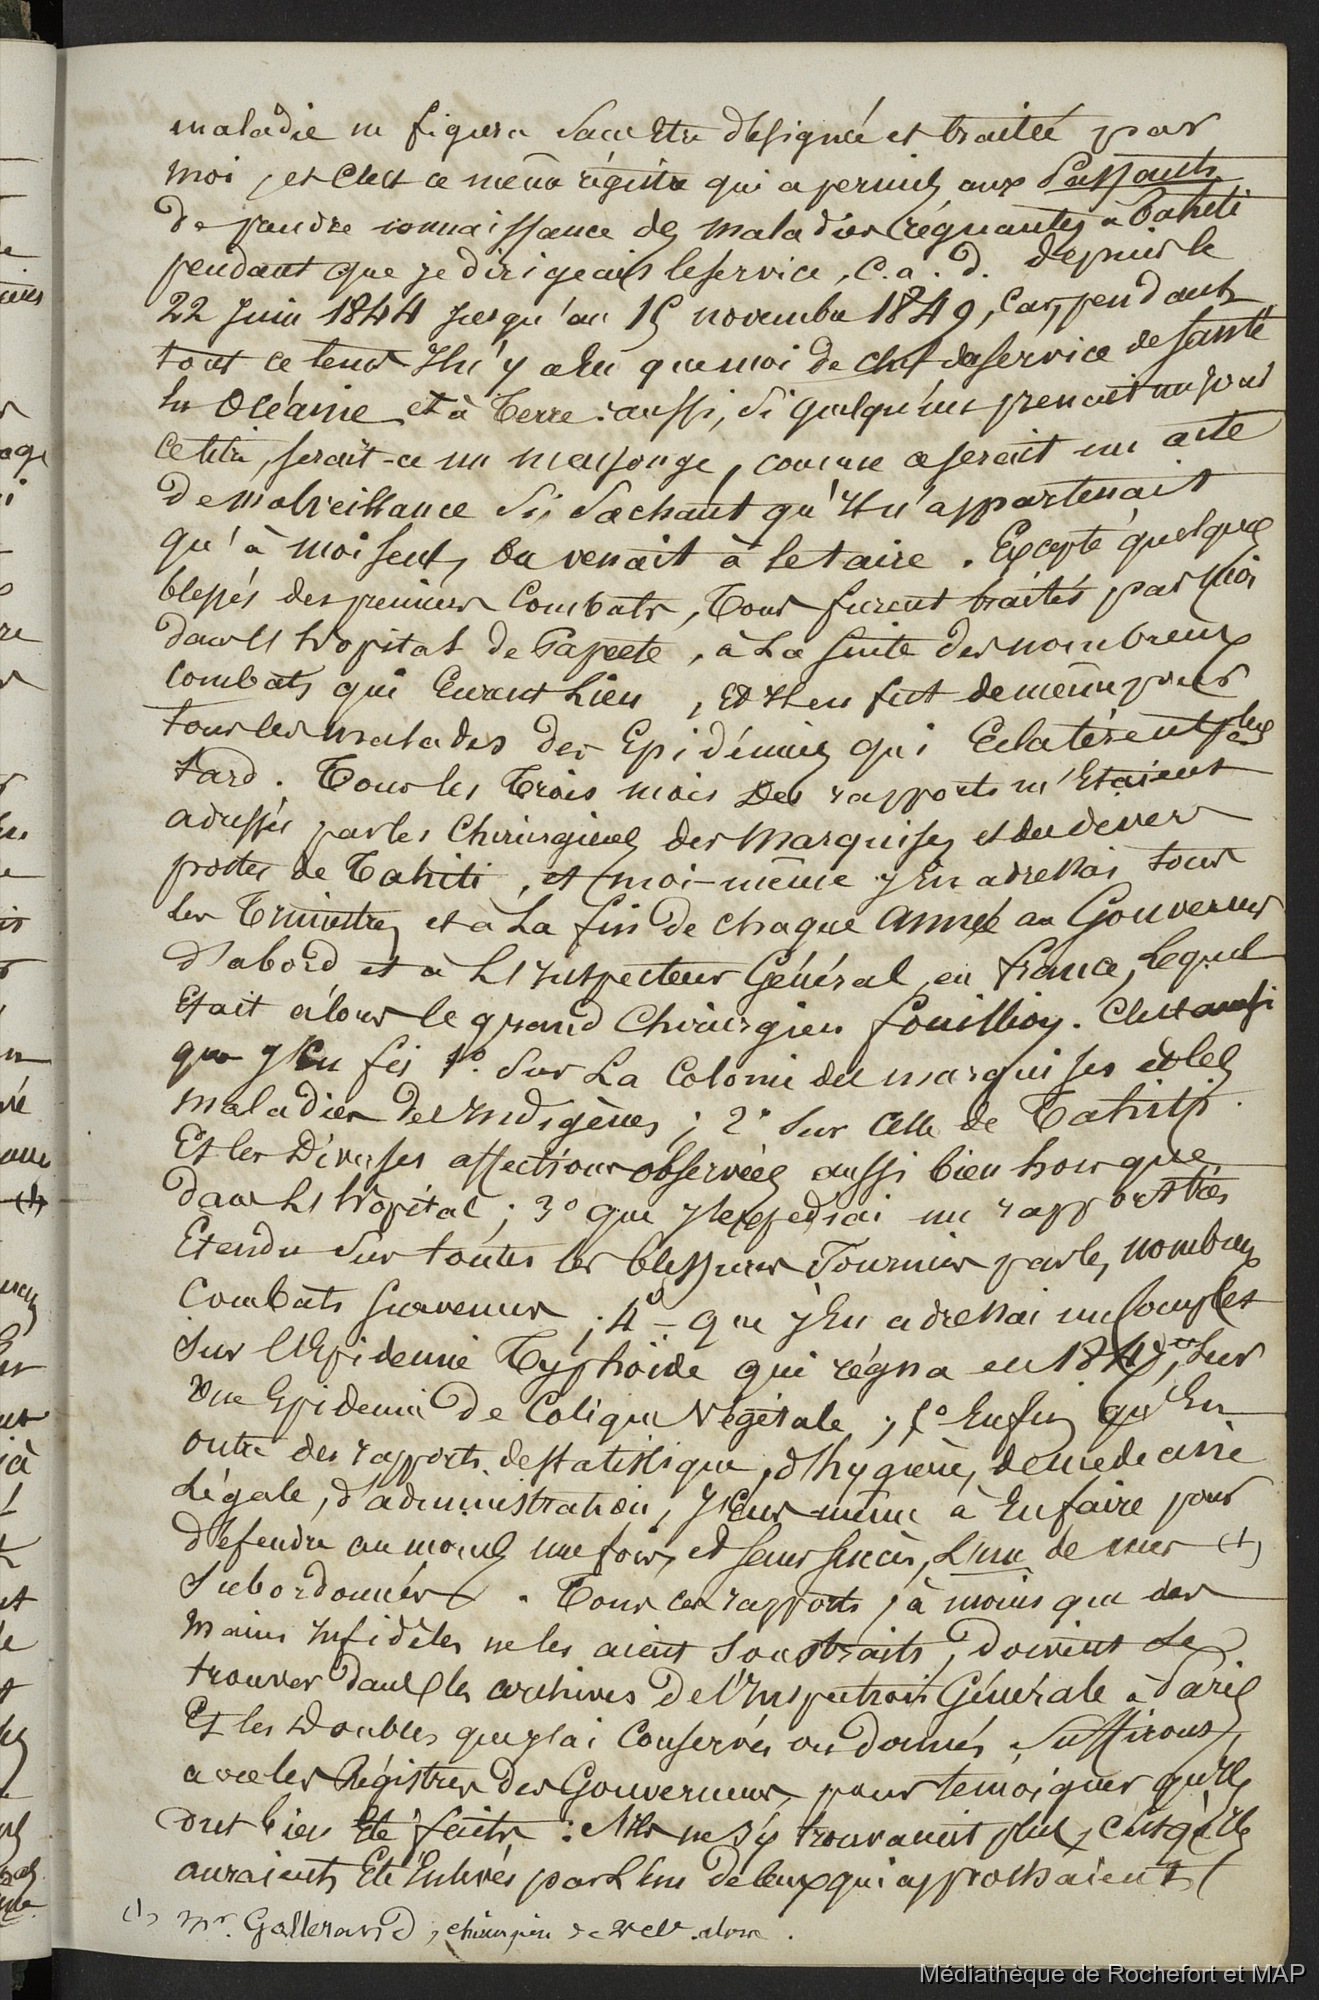 maladie ne figura sans être désignée et traitée par
moi, et c'est ce même régistre qui a permis aux passants
de prendre connaissance des maladies régnantes à Tahiti
pendant que je dirigeais le service, c. a. d. depuis le
22 Juin 1844 jusqu'au 15 novembre 1849, car, pendant
tout ce tems Il n'y a Eu que moi de chef de service de santé
En Océanie et à Terre : aussi, si quelqu'un prenait un jour
ce titre, serait-ce un mensonge, comme ce serait un acte
de malveillance si, sachant qu'Il n'appartenait
qu'à moi seul, on venait à le taire. Excepté quelques
blessés des premiers Combats, Tous furent traités par moi
dans l'hopital de Papeete, à La suite des nombreux
combats qui Eurent Lieu, Et Il en fut de même pour
tous les malades des Epidémies qui Eclatèrent plus
tard. Tous les Trois mois des rapports m'Etaient
adressés par les Chirurgiens des Marquises et des divers
postes de Tahiti, et moi-même j'En adressai tous
les Trimestres et à La fin de chaque année au Gouverneur
d'abord et à L'Inspecteur Général, en france, Lequel
Etait alors le grand Chirurgien fouillioy. C'est ainsi
que j'En fis 1º. sur La Colonie des marquises et les
maladies des Indigènes ; 2º sur celle de Tahiti
Et les Diverses affections observées aussi bien hors que
dans L'hopital ; 3º que j'expédiai un rapport très
Etendu sur toutes les blessures fournies par les nombreux
Combats survenus ; 4º - que j'En adressai un complet
sur l'Epidemie Typhoïde qui régna en 184 , sur
Une Epidemie de Colique Végétale ; 5º Enfin, qu'En
outre des rapports de statistique, d'hygiène, de medecine
Légale, d'administration, j'Eus même à En faire pour
défendre au moins une fois, et sans succès, L'un de mes (1)
subordonnés. Tous ces rapports, à moins que des
mains Infidèles ne les aient soustraits, doivent se
trouver dans les archives de l'Inspection Générale à Paris
Et les Doubles que j'ai Conservés ou donnés, suffiront,
avec les Régistres des Gouverneurs, pour témoigner qu'Ils
ont bien Eté faits : S'Ils ne s'y trouvaient plus, c'est qu'Ils
auraient Eté Enlevés par L'un de ceux qui approchaient
(1) Mr. Gallerand, chirurgien de 2e cl. alors.